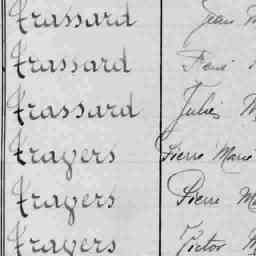 Trassard Jean M
Trassard
Trassard Julien M
Trayers Pierre Marie
Trayers Pierre Ma
Trayers Victor M